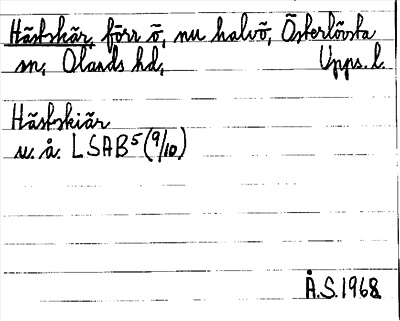 Hästskär, förr ö, nu halvö, Österlövsta
sn, Olands hd, Upps. l.
Hästskiär
u. å. LSAB5 (9/10)
Å.S. 1968